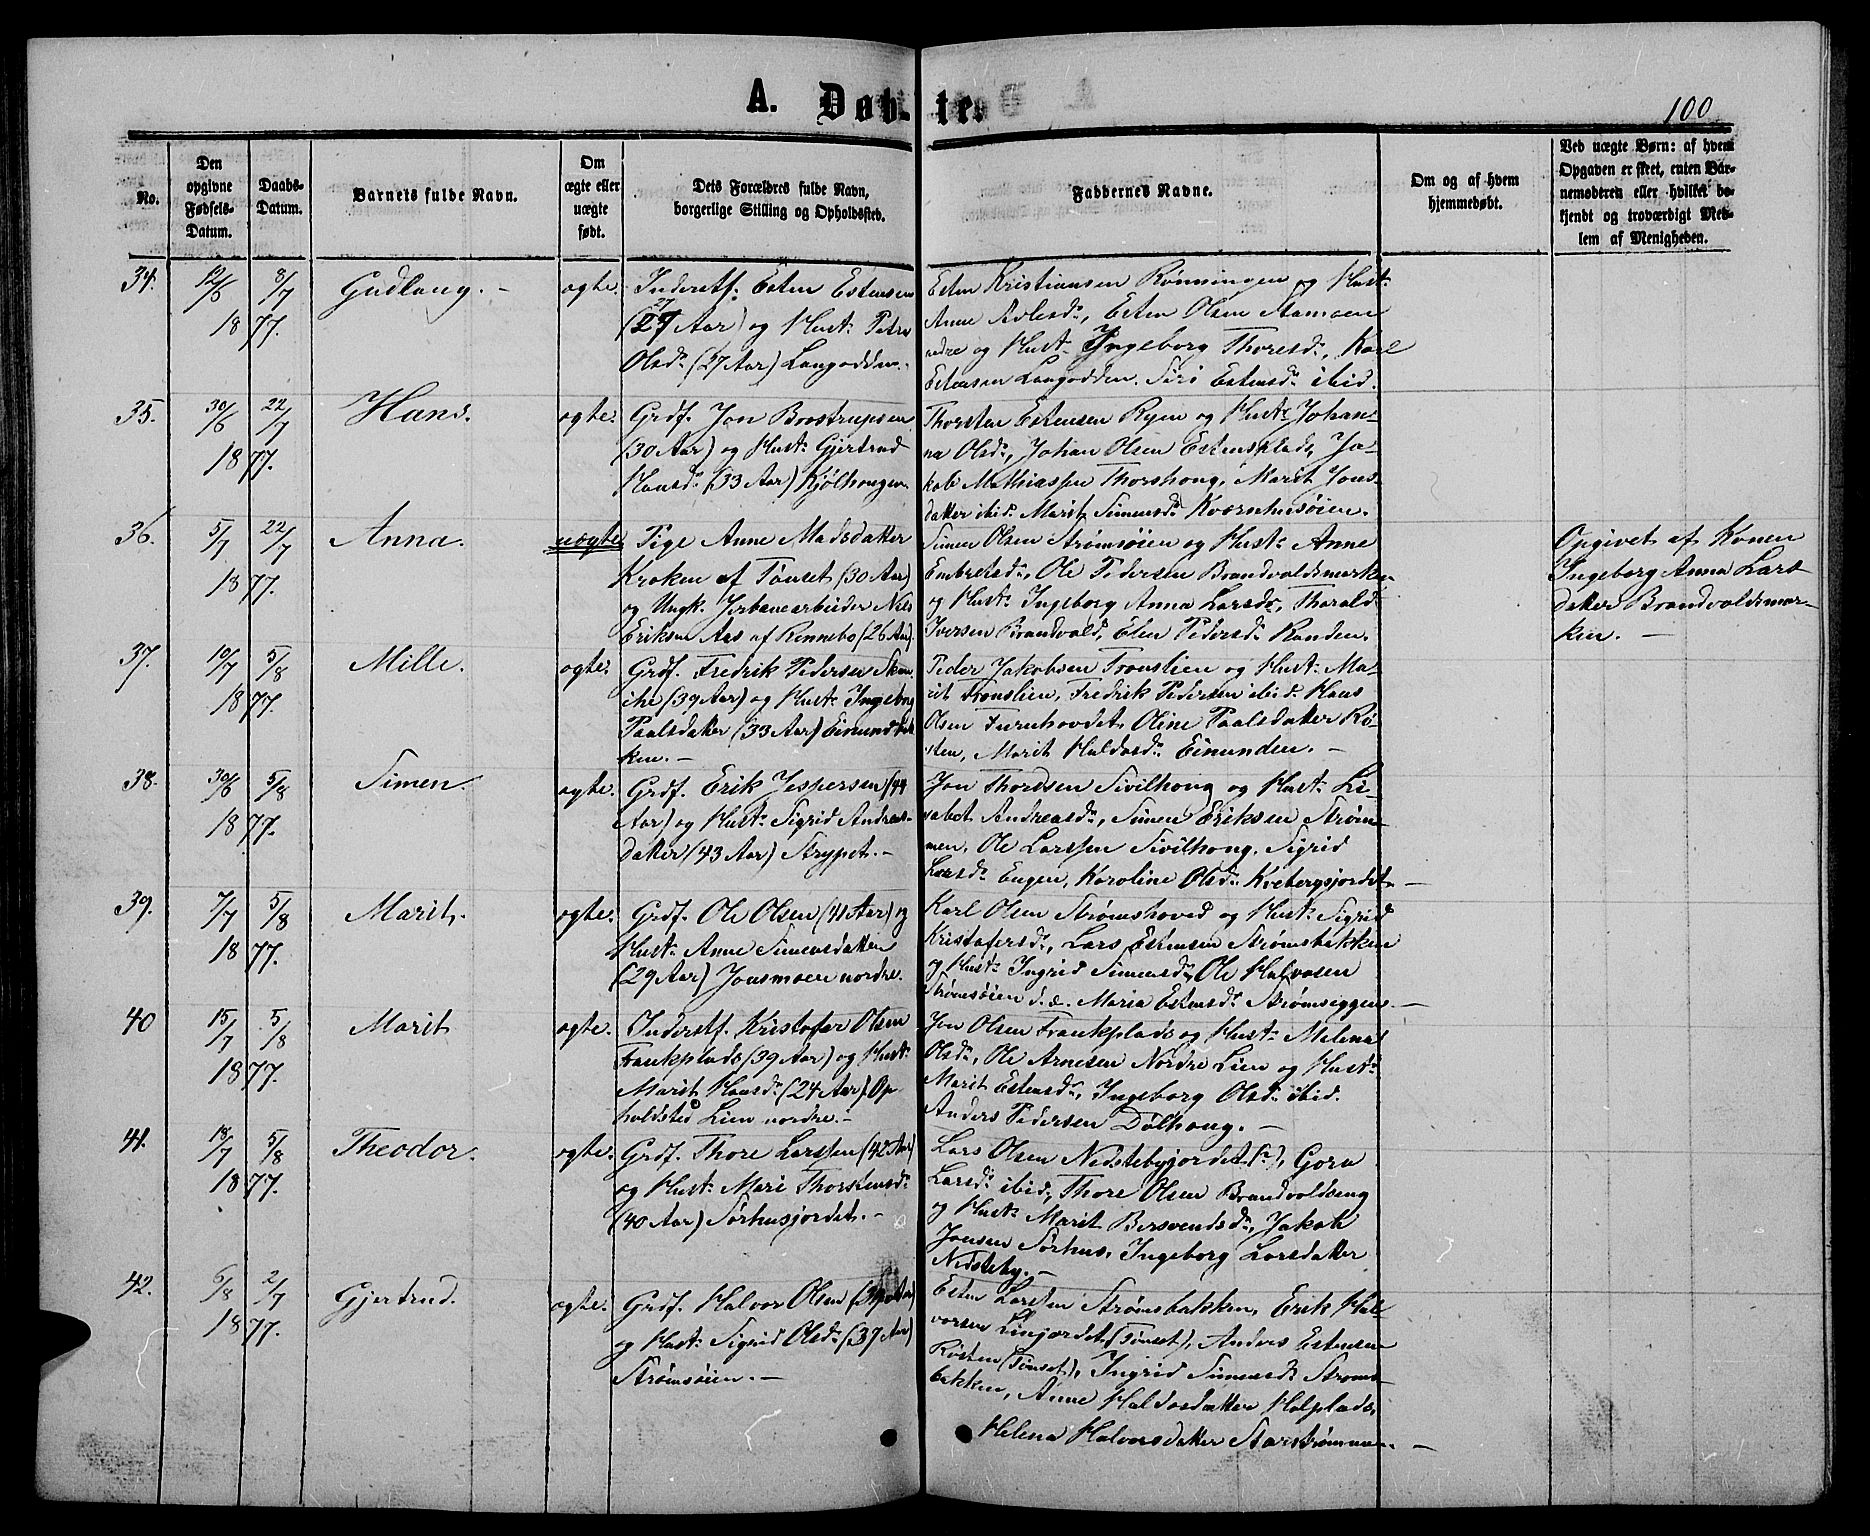 A. Døbte.
100
No.
Den opgivne Fødsels-Datum.
Daabs-Datum.
Barnets fulde Navn.
Om ægte eller uægte født.
Dets Forældres fulde Navn, borgerlige Stilling og Opholdssted.
Faddernes Navne.
Om og af hvem hjemmedøbt.
Ved uægte Børn: af hvem Opgaven er skeet, enten Barnemoderen eller hvilket bekjendt og troværdigt Medlem af Menigheden.
34. 12/6 8/7 1877. Gudlaug. - ægte.
Inderstf. Esten Estensen
(27 Aar) og Hust: Petra
Olsd: (37 Aar) Langodden.
Esten Kristiansen Rønningen og Hust:
Anne Avlesd:, Esten Olsen Stamoen
nedre og Hust: Ingeborg Thoresd:, Karl
Estensen Langodden. Siri Estensd: ibid.
35. 30/6 22/7 1877. Hans. ægte.
Grdf. Jon Brostrupsen
(30 Aar) og Hust: Gjertrud
Hansd: (33 Aar) Kjølhougen.
Thorsten Estensen Ryen og Hust: Johan-
na Olsd:, Johan Olsen Estensplads, Ja-
kob Mathiassen Thorshoug, Marit Jons-
datter ibid. Marit Simensd: Kværnhusøien.
36. 5/7 22/7 1877. Anna. uægte
Pige Anne Madsdatter
Kroken af Tønset (30 Aar)
og Ungk. Jernbanearbeider Nils
Eriksen Aas af Rennebo (26 Aar).
Simen Olsen Strømsøien og Hust: Anne
Embretsd:, Ole Pedersen Brandvoldsmarken
og Hust: Ingeborg Anna Larsd:, Tharald
Iversen Brandvold, Elen Pedersd: Randen.
Opgivet af Konen
Ingeborg Anna Lars-
datter Brandvoldsmar-
ken. -
37. 10/7 5/8 1877. Mille. ægte.
Grdf. Fredrik Pedersen
(39 Aar) og Hust: Ingeborg
Paalsdatter (33 Aar)
ken. -
Peder Jakobsen Tronslien og Hust: Ma-
rit Tronslien, Fredrik Pedersen ibid: Hans
Olsen Furuhovdet, Oline Paalsdatter Rø-
sten, Marit Haldosd: Einunden. -
38. 30/6 5/8 1877. Simen. ægte.
Grdf. Erik Jespersen (44
Aar) og Hust: Sigrid Andreas-
datter (43 Aar) Strypet. -
Jon Thoresen Sivilhoug og Hust: Li-
sabet Andreasd:, Simen Eriksen Strøm-
men, Ole Larssen Sivilhoug. Sigrid
Larsd: Engen, Karoline Olsd: Kvebergsjordet. -
39. 7/7 5/8 1877. Marit. ægte.
Grdf. Ole Olsen (41 Aar) og
Hust: Anne Simensdatter
(29 Aar) Jonsmoen nordre.
Karl Olsen Strømshoved og Hust: Sigrid
Kristofersd:, Lars Estensen Strømsbakken
og Hust: Ingrid Simensd:, Ole Halvorsen
Strømsøien d. æ. Maria Estensd: Strømseggen. -
40 15/7 5/8 1877. Marit ægte.
Inderstf. Kristofer Olsen
Frankplads (39 Aar) og Hust:
Marit Hansd: (24 Aar). Op-
holdsted Lien nordre. -
Jon Olsen Frankplads og Hust: Melena
Olsd:, Ole Arnesen Nordre Lien og Hust:
Marit Estensd:, Ingeborg Olsd: ibid.
Anders Pedersen Dølhoug. -
41. 18/7 5/8 1877. Theodor. ægte.
Grdf. Thore Larssen (42 Aar)
og Hust: Mari Thorstensd:
(40 Aar) Sørhusjordet. -
Lars Olsen Nedstebyjordet (?), Goro
Larsd: ibid., Thore Olsen Brandvoldseng
og Hust: Marit Bersvendsd:, Jakob
Jonsen Sørhus, Ingeborg Larsdatter
Nedsteby. -
42. 6/8 2/7 1877. Gjertrud. ægte.
Grdf. Halvor Olsen
og Hust: Sigrid Olsd: (37 Aar)
Strømsøien. -
Esten Larsen Strømsbakken, Erik Hal-
vorsen Linjordet (Tønset), Anders Estensen
Røsten (Tønset), Ingrid Simensd: Strøms-
bakken, Anne Haldosdatter Holplads,
Helena Halvorsdatter Storstrømmen. -